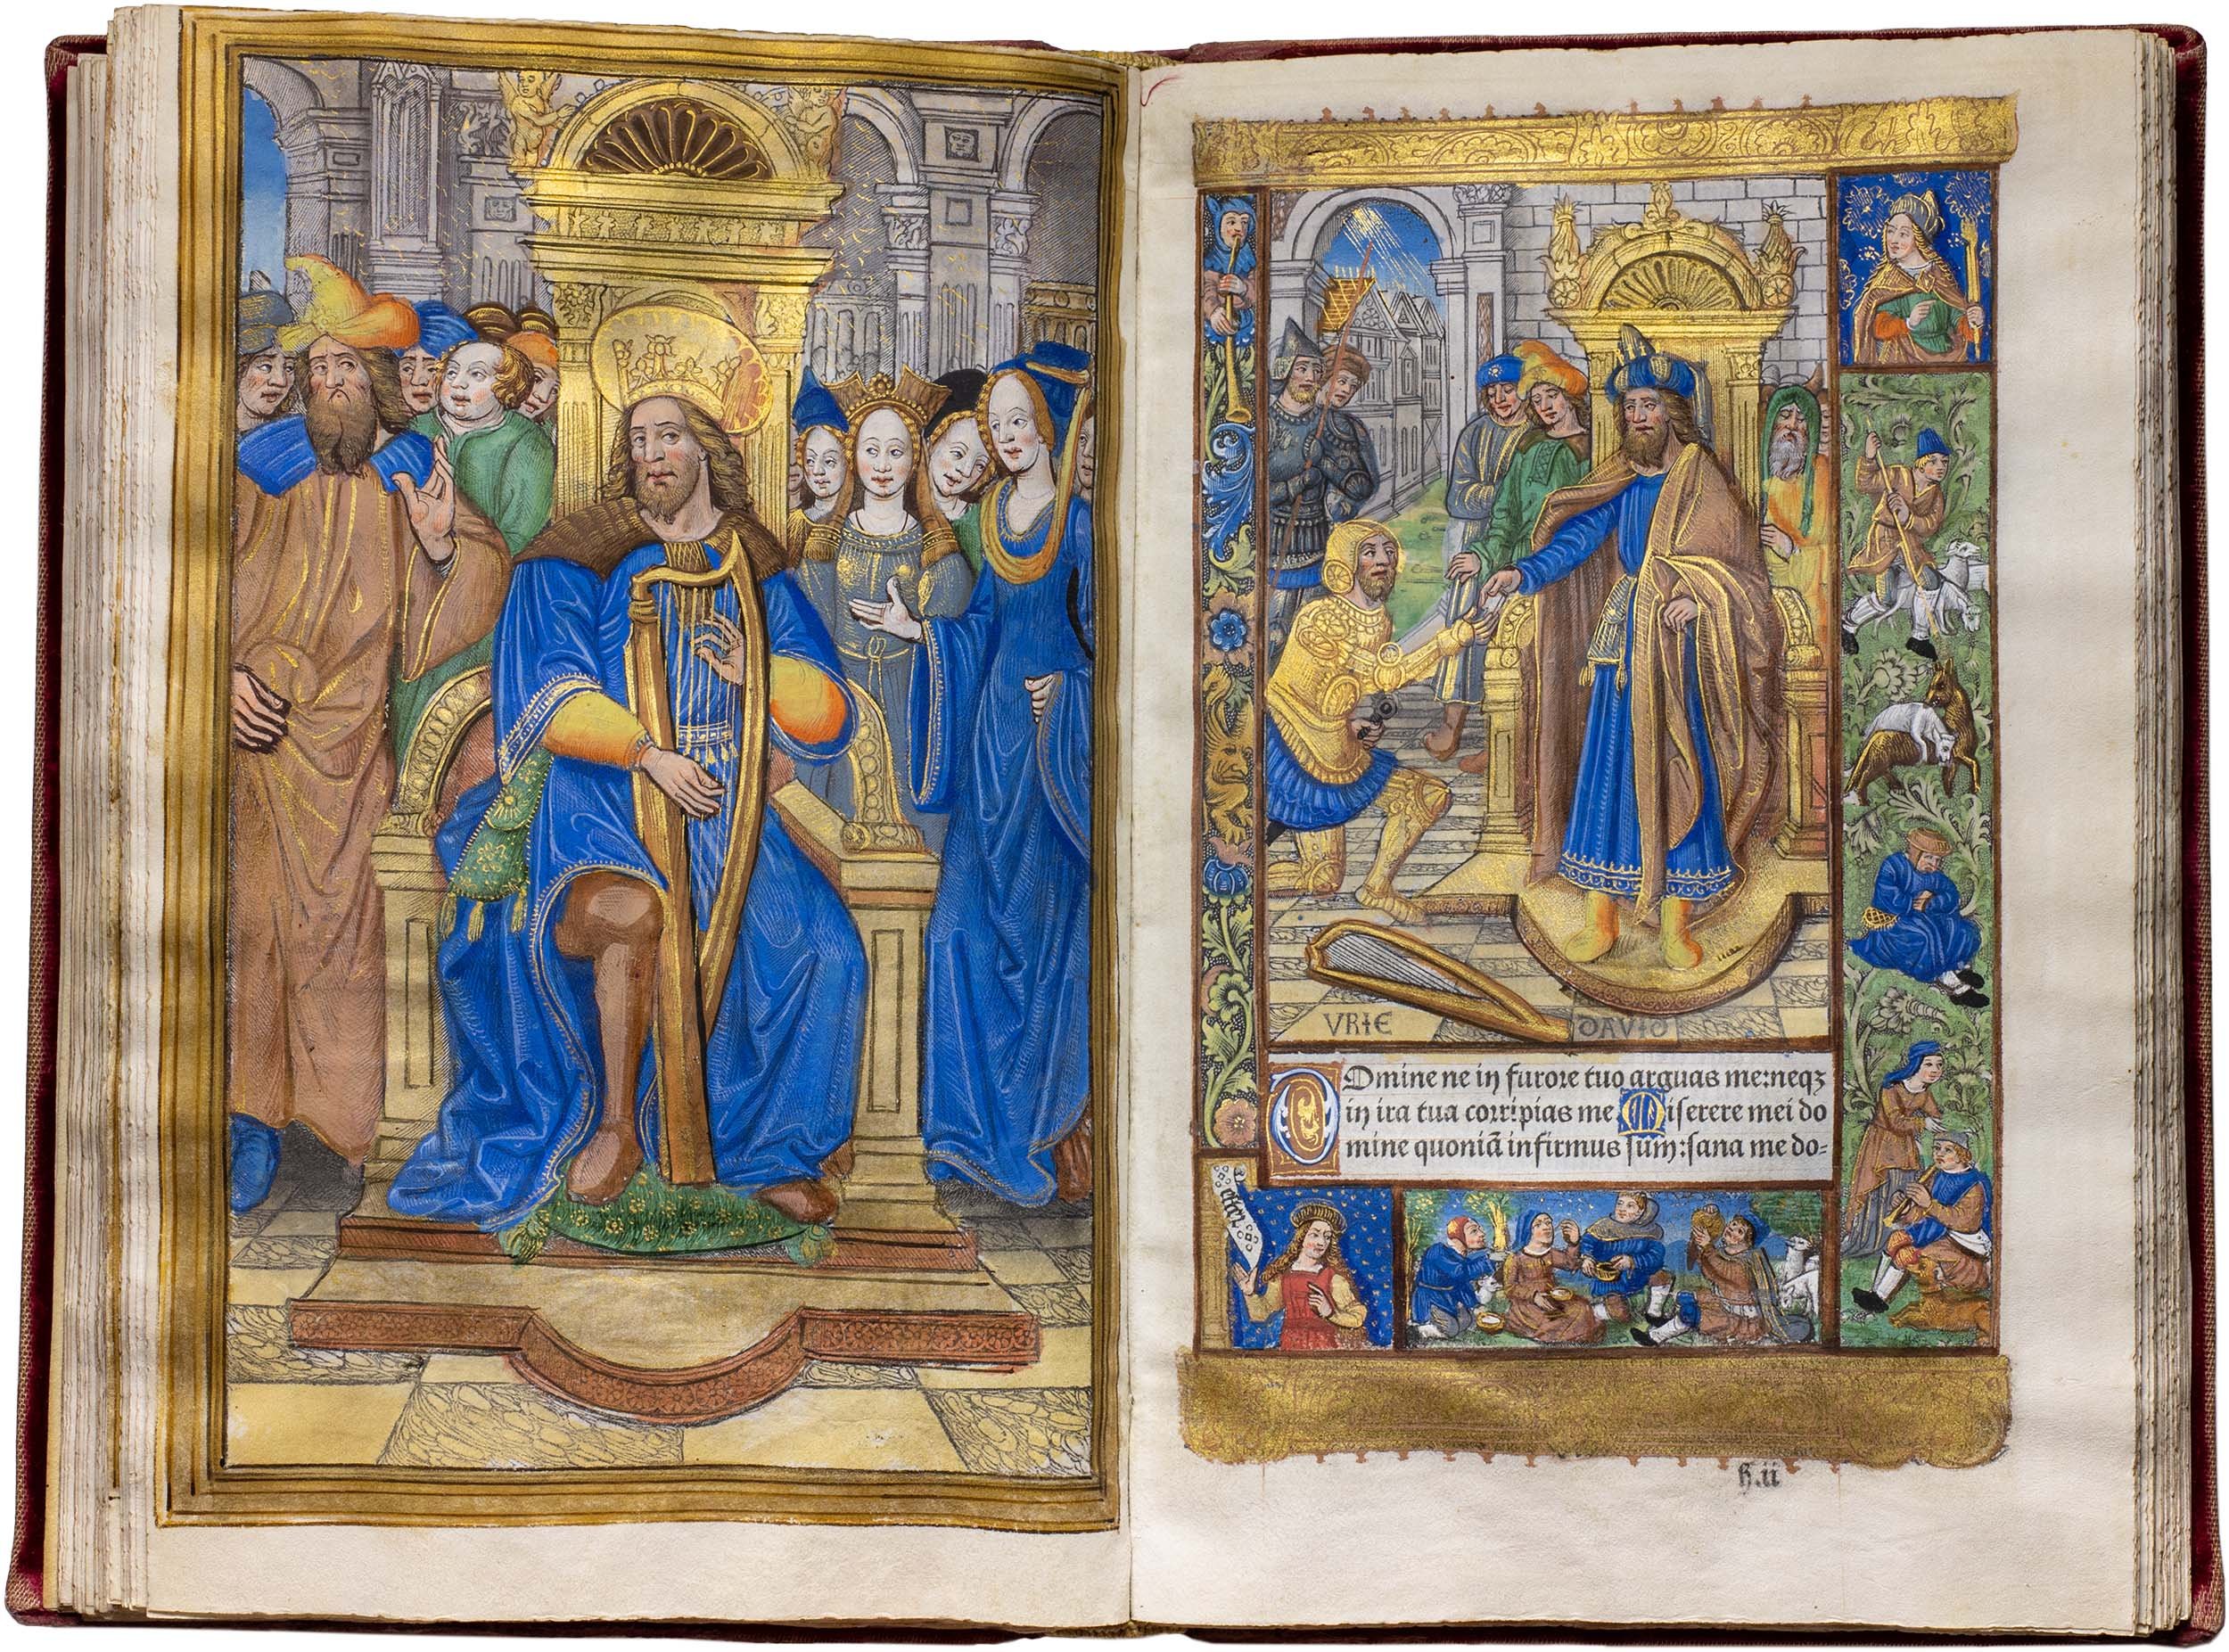 VRIE DAVID
Domine ne in furore tuo arguas me: neqz
in ira tua corripias me Miserere mei do
mine quoniã infirmus sum: sana me do-
h.ii